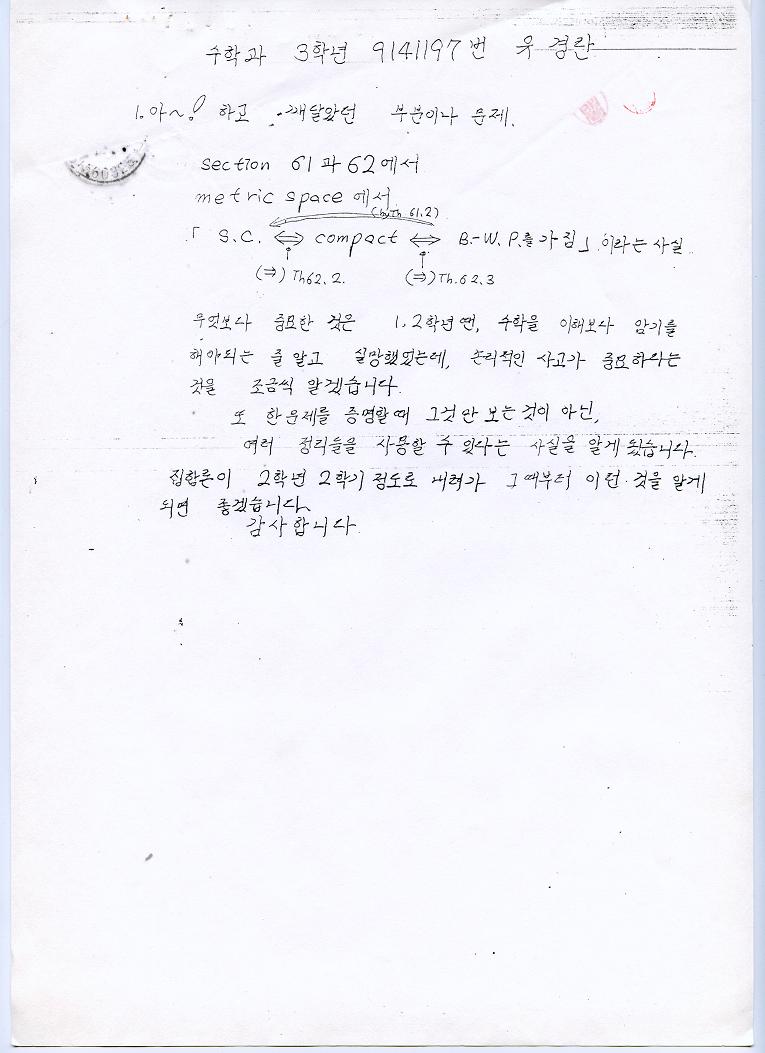 수학과 3학년 9141197번 유경란
1. 아~! 하고 깨달았던 부분이나 문제.
section 61과 62에서
metric space에서
(by Th 61.2)
「 S.C. ⇔ compact ⇔ B.-W.P.를 가짐」이라는 사실
(⇒) Th 62.2. (⇒) Th.62.3
무엇보다 중요한 것은 1,2학년땐, 수학을 이해보다 암기를
해야되는 줄 알고 실망했었는데, 논리적인 사고가 중요하다는
것을 조금씩 알겠습니다.
또 한문제를 증명할때 그것만 보는것이 아닌,
여러 정리들을 사용할 수 있다는 사실을 알게 됬습니다.
집합론이 2학년 2학기 정도로 내려가 그때부터 이런 것을 알게
되면 좋겠습니다.
감사합니다.